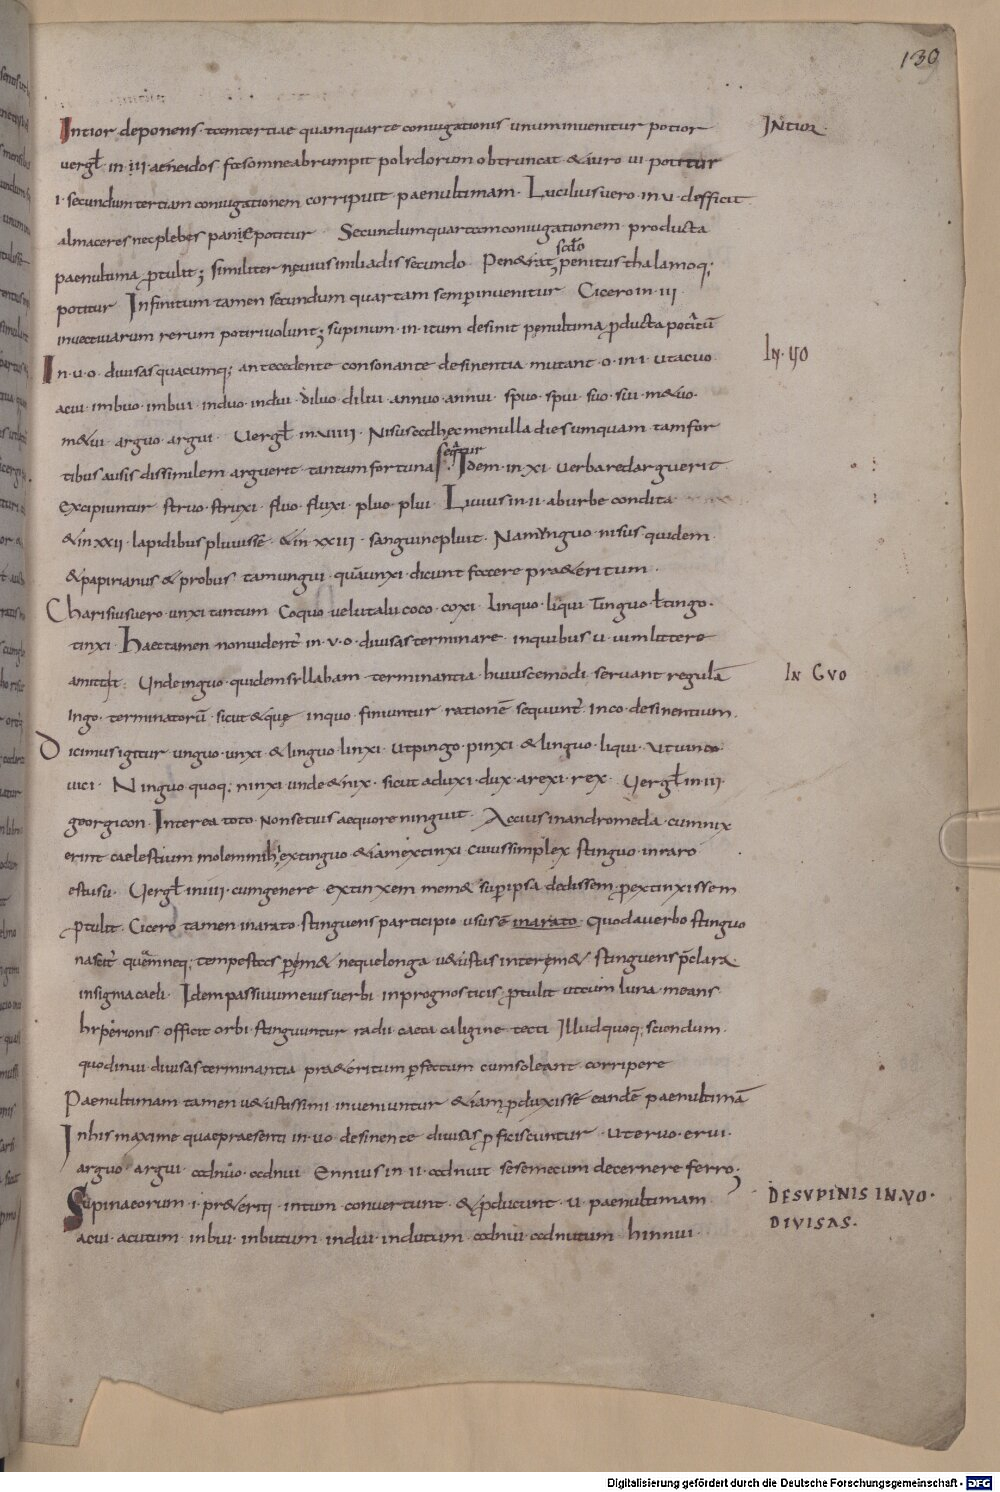 139
Intior deponens tam tertiae quam quarte coniugationis unum inuenitur potior
INtior
uergł in iii aeneidos fas omne abrumpit polydorum obtruncat & auro ui potitur
i secundum tertiam coniugationem corripuit paenultimam. Lucilius uero in u. desficit
alma ceres nec plebes pane potitur Secundum quartam coniugationem producta
paenultima ꝓtulit; similiter neuius iniliadis secundo. Pen&rat penitus thalamoq;
potitur Infinitum tamen secundum quartam semper inuenitur Cicero in iii
inuectiuarum rerum potiri uolunt; supinum in itum desinit penultima ꝓducta potitū
In u o diuisas quacumq; antecedente consonante desinentia mutant o in i ut acuo
IN UO
acui imbuo imbui induo indui diluo dilui annuo annui spuo spui suo sui m&uo
m&ui arguo argui Uergł in uiiii Nisus ad hec me nulla dies umquam tam for
tibus ausis dissimilem arguerit tantum fortuna Idem in xi uerba redarguerit
Excipiuntur struo struxi fluo fluxi pluo plui Liuius in ii ab urbe condita
& in xxii lapidibus pluuisse & in xxiii sanguine pluit. Nam unguo nisus quidem
& papirianus & probus tam ungui quā unxi dicunt facere pra&eritum
Charisius uero unxi tantum Coquo uel ut alii coco coxi linquo liqui Tinguo ł tingo
tinxi Haec tamen non uident in u o diuisas terminare in quibus u uim littere
amittit Unde in guo quidem syllabam terminantia huiuscemodi seruant regulā
IN GVO
in go terminatorū sicut & que in quo finiuntur rationē sequunt in co desinentium
Dicimus igitur unguo unxi & linguo linxi ut pingo pinxi & linquo liqui ut uinco
uici Ninguo quoq; ninxi unde & nix sicut a duxi dux a rexi rex Uergł in iii
georgicon Interea toto non setius aequore ninguit Accius in andromeda cum nix
erint caelestium molem mihi extinguo & iam extinxi cuius simplex stinguo in raro
est usu Uergł in iiii cum genere extinxem mem& super ipsa dedissem ꝓ extinxissem
ꝓtulit Cicero tamen in arato stinguens participio usus ē in arato quod a uerbo stinguo
nascit quam neq; tempestas perem& neque longa u&ustas interem& stinguens p̄clara
insignia caeli Idem passiuum eius uerbi in prognosticis ꝓtulit ut cum luna means
hyperionis officit orbi stinguuntur radii caeca caligine tecti Illud quoq; sciendum
quod in ui diuisas terminantia pra&eritum perfectum cum soleant corripere
Paenultimam tamen u&ustissimi inueniuntur & iam ꝓduxisse eandē paenultimā
In his maxime quae praesenti in uo desinente diuisas ꝓficiscuntur ut eruo erui
arguo argui adnuo adnui Ennius in ii adnuit sese mecum decernere ferro;
Supina eorum i pr&eriti in tum conuertunt & ꝓducunt u paenultimam
DE SVPINIS IN VO
DIVISAS
acui acutum inbui inbutum indui indutum adnui adnutum hinnui
Digitalisierung gefördert durch die Deutsche Forschungsgemeinschaft - DFG